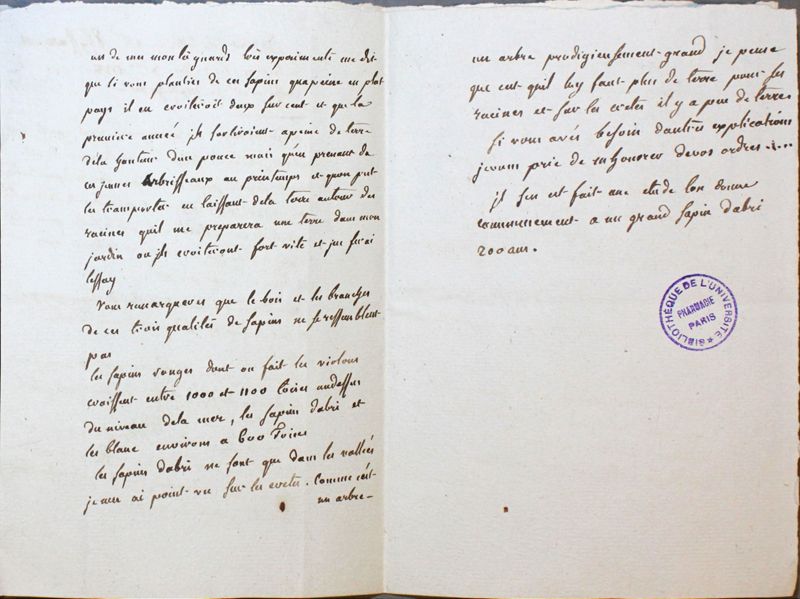 un de mes montagnards très experimenté me dit
que si vous plantiés de ces sapins quapeine en plat
pays il en croitroit deux sur cent et que la
premiere année jls sortiroient apeine de terre
dela hauteur dun pouce mais qu'en prenant de
ces jeunes Arbrisseaux au printemps et quon put
les transporter en laissant dela terre autour des
racines quil me preparera une terre dans mon
jardin ou jls croitoront fort vite et jen ferai
lessay
Vous remarquerés que le bois et les branches
de ces trois qualités de sapins ne se ressemblent
pas
les sapins rouges dont on fait les violons
croissent entre 1000 et 1100 toises audessus
du niveau dela mer, les sapins dabri et
les blanc environs a 600 Toises
les sapins dabri ne sont que dans les vallées
je nen ai point vu sur les cretes. Comme cest
un arbre-
un arbre prodigieusement grand je pense
que cest quil luy faut plus de terre pour ses
racines et sur les cretes il y a peu de terres
si vous avés besoin dautres explications
je vous prie de m honorer de vos ordres ....
jl sen est fait une etude lon donne
communement a un grand sapin dabri
200 ans.
BIBLIOTHÈQUE DE L'UNIVERSITÉ
PHARMACIE
PARIS